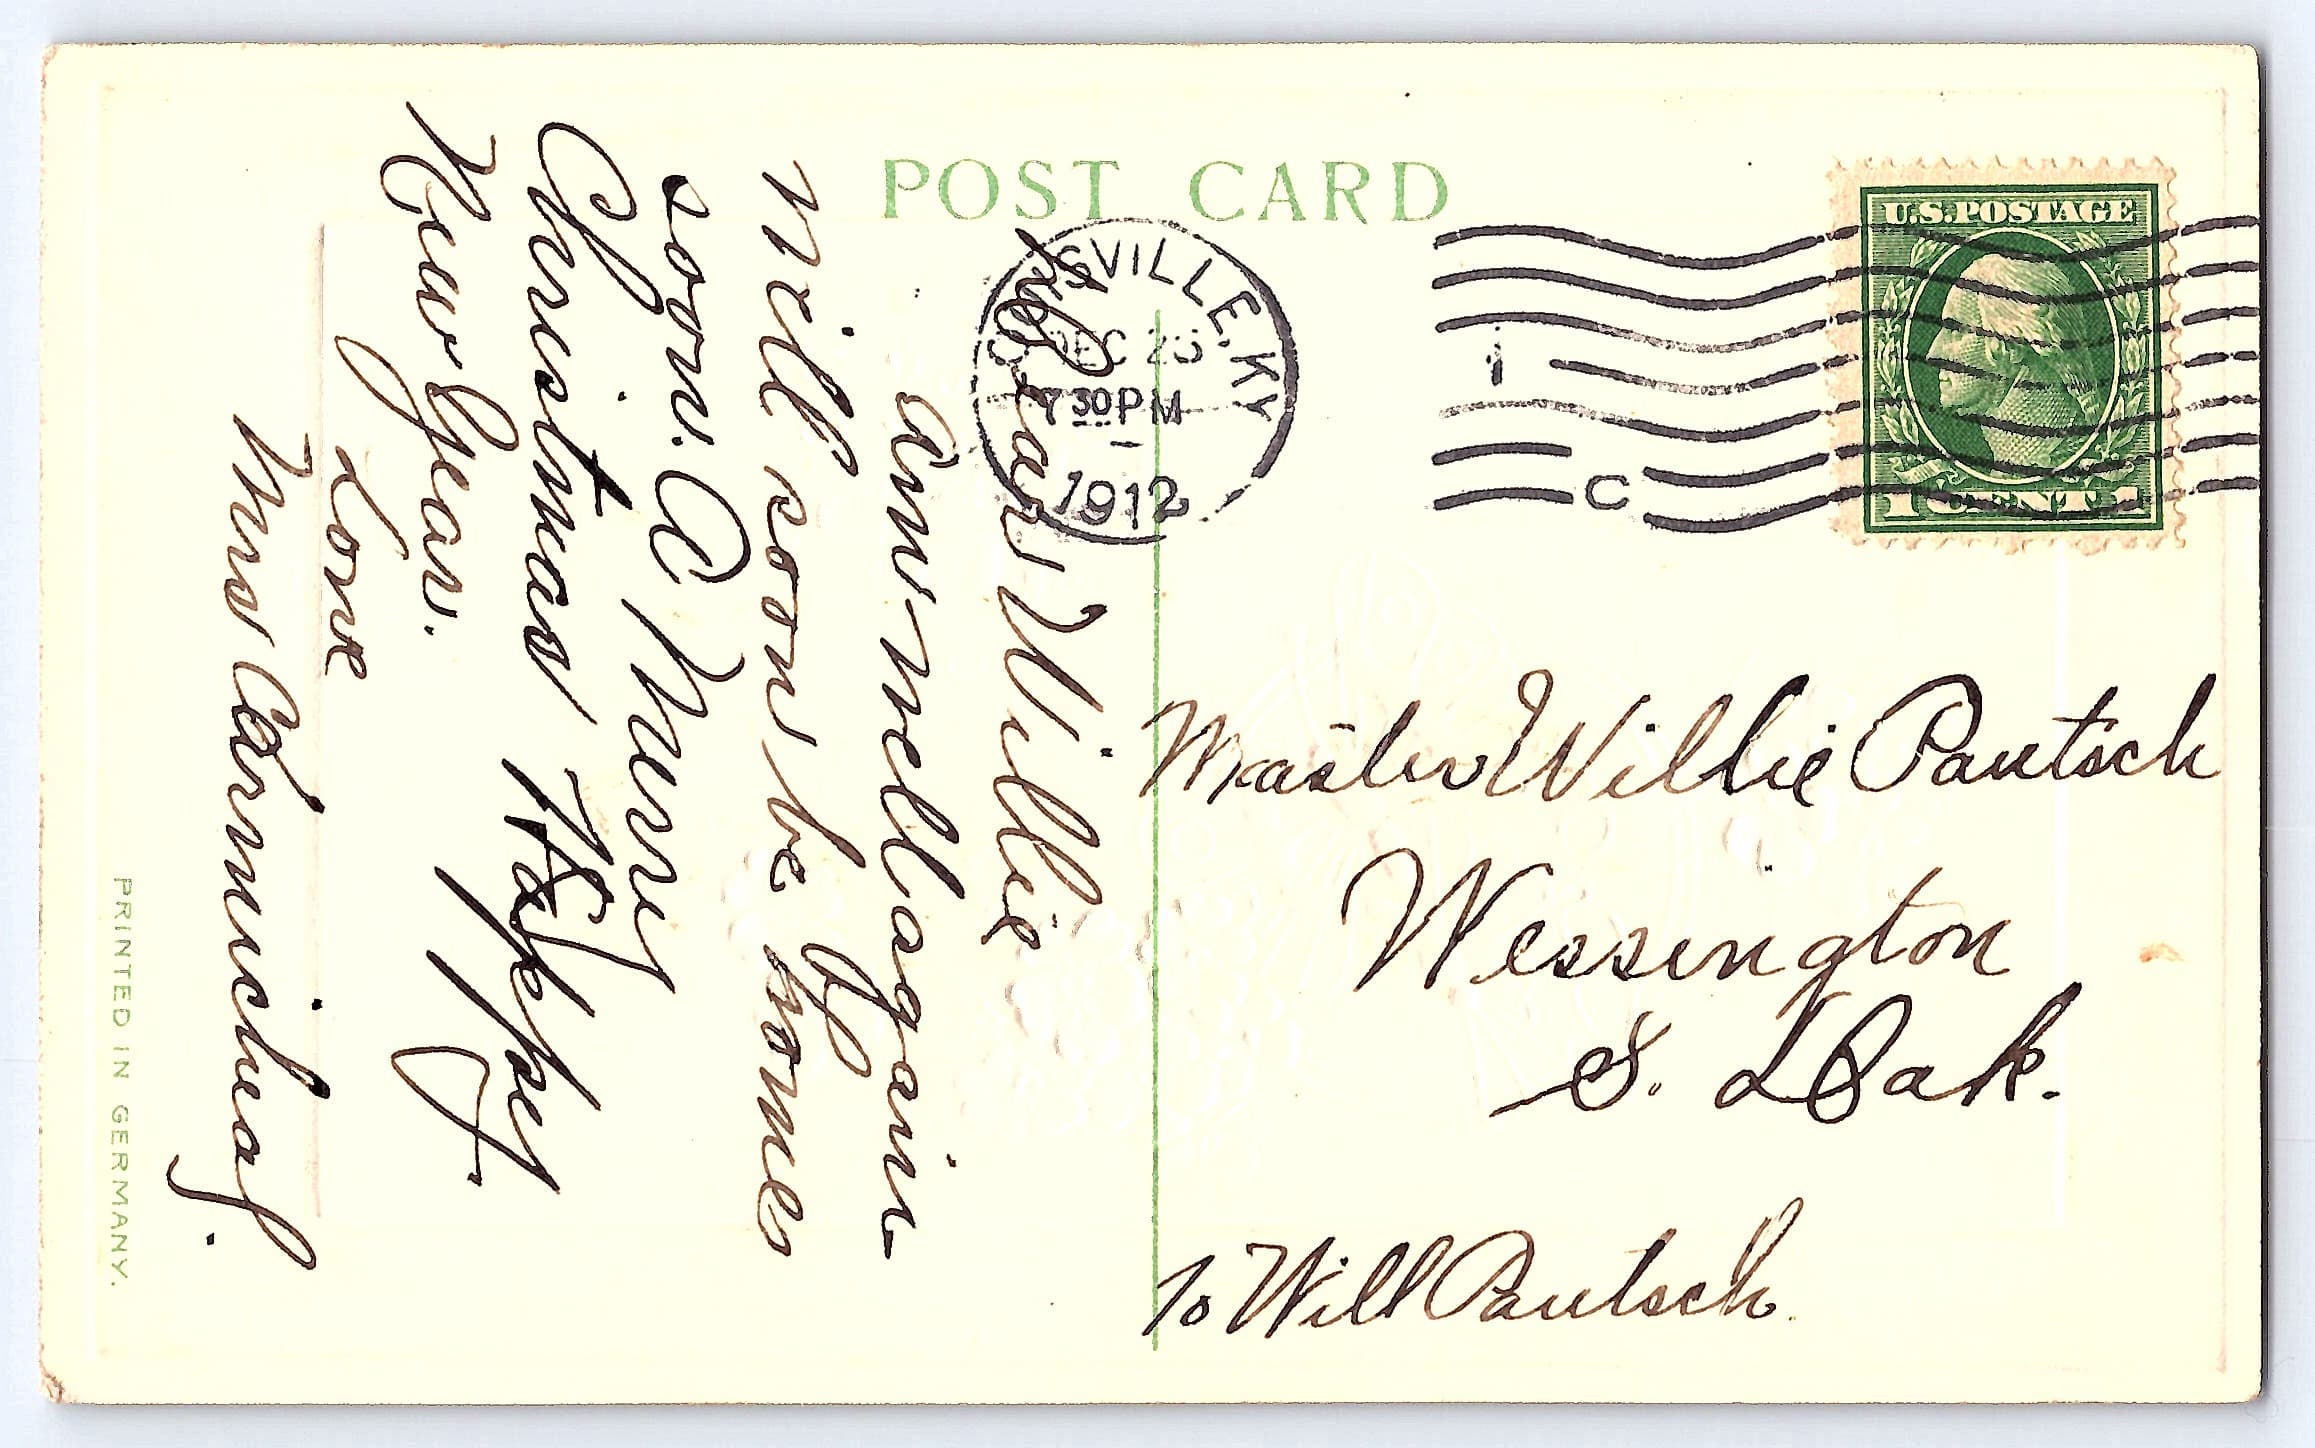 POST CARD
SVILLE, KY
DEC 25
7 30 PM
1912
C
U.S. POSTAGE
1 CENT 1
Dear Willie
Am well again
Will soon be home
soon. A Merry
Christmas & Happy
New Year.
Love
Mrs Carmichael.
Master Willie Pautsch
Wessington
S. Dak.
To Will Pautsch.
PRINTED IN GERMANY.